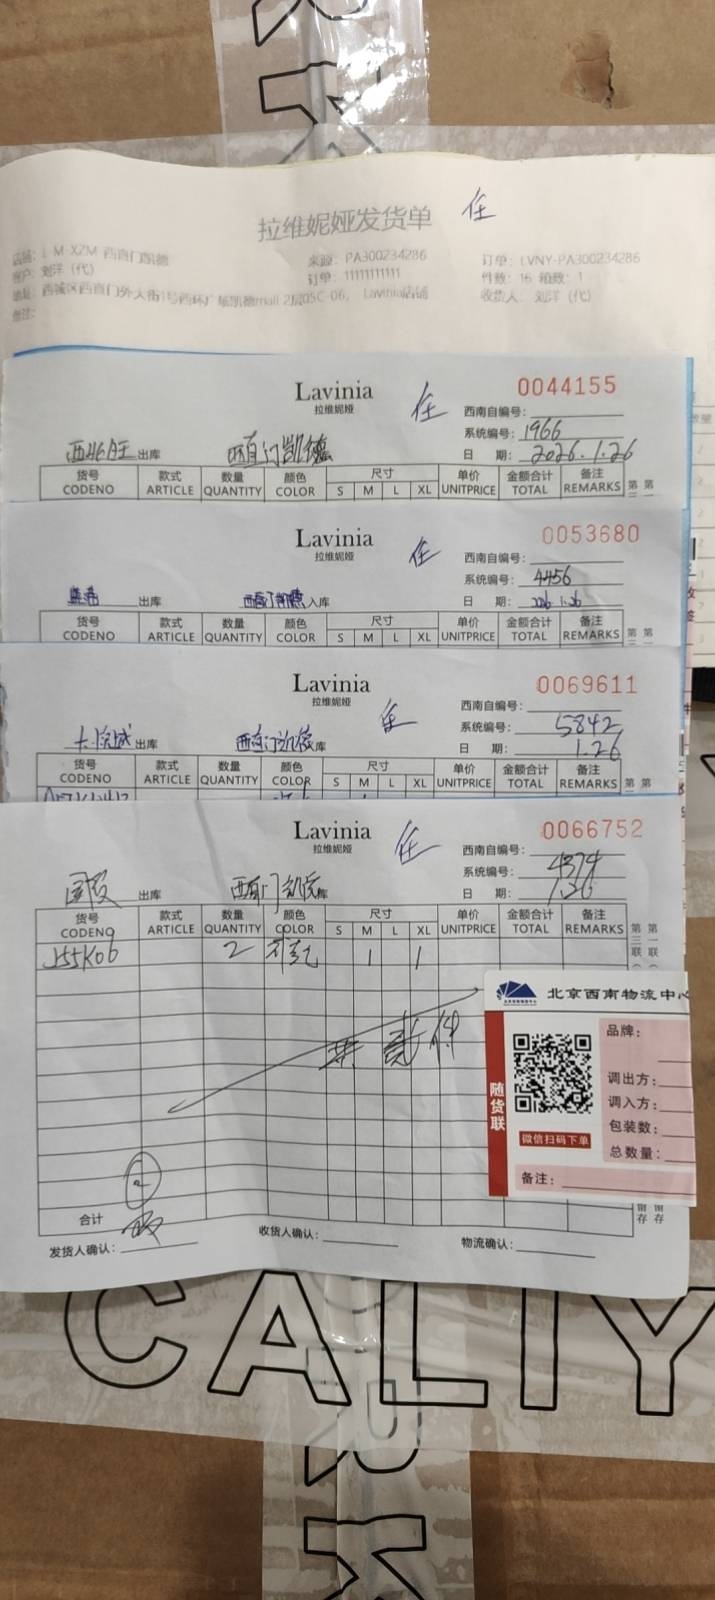 拉维妮娅发货单 任
店铺: L-M-XZM 西直门凯德 来源: PA300234286 订单: LVNY-PA300234286
客户: 刘洋 (代) 订单: 11111111111 件数: 16 箱数: 1
地址: 西城区西直门外大街1号西环广场凯德mall 2层05C-06, Lavinia店铺 收货人: 刘洋 (代)
备注:
Lavinia 任 0044155
拉维妮娅 西南自编号:
系统编号: 1966
西北旺 出库 西直门凯德 日 期: 2026.1.26
货号 款式 数量 颜色 尺寸 单价 金额合计 备注
CODENO ARTICLE QUANTITY COLOR S M L XL UNITPRICE TOTAL REMARKS 第 第
Lavinia 任 0053680
拉维妮娅 西南自编号:
系统编号: 4456
出库 西直门凯德 入库 日 期: 2026.1.26
货号 款式 数量 颜色 尺寸 单价 金额合计 备注
CODENO ARTICLE QUANTITY COLOR S M L XL UNITPRICE TOTAL REMARKS 第 第
Lavinia 任 0069611
拉维妮娅 西南自编号:
系统编号: 5842
大悦城 出库 西直门凯德 库 日 期: 1.26
货号 款式 数量 颜色 尺寸 单价 金额合计 备注
CODENO ARTICLE QUANTITY COLOR S M L XL UNITPRICE TOTAL REMARKS 第 第
Lavinia 任 0066752
拉维妮娅 西南自编号:
系统编号: 4374
国贸 出库 西直门凯德 库 日 期: 1.26
货号 款式 数量 颜色 尺寸 单价 金额合计 备注
CODENO ARTICLE QUANTITY COLOR S M L XL UNITPRICE TOTAL REMARKS 第三联 第一联
J55K06 2 杏色 1 1
共 贰 件
北京西南物流中心
随货联
品牌:
调出方:
调入方:
包装数:
总数量:
微信扫码下单
备注:
2
合计 留存 留存
发货人确认: 收货人确认: 物流确认:
CALIY